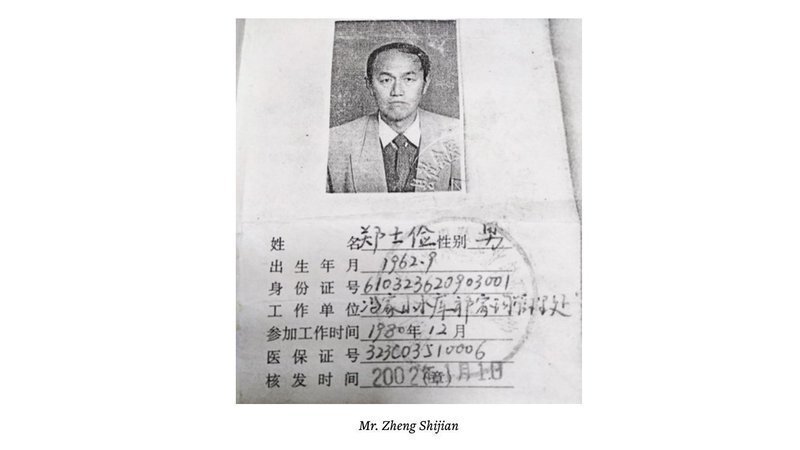 姓 名 郑士俭 性别 男
出生年月 1962.9
身份证号 610323620903001
工作单位 冯家山水库 管理处
参加工作时间 1980年12月
医保证号 323C03510006
核发时间 2002年1月1日 (章)
Mr. Zheng Shijian